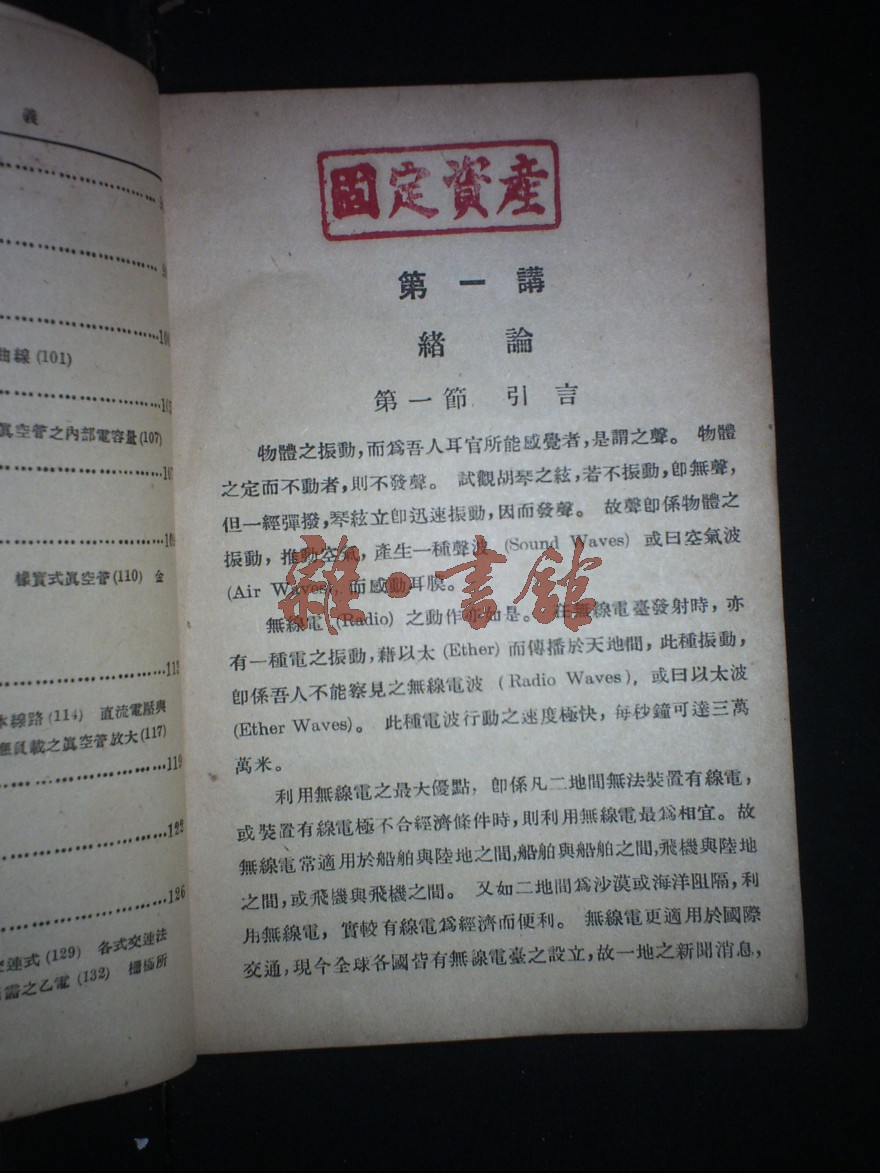 義
曲線 (101)
眞空管之內部電容量 (107)
樣實式眞空管 (110) 金
本線路 (114) 直流電壓與
無負載之眞空管放大 (117)
119
122
126
交連式 (129) 各式交連法
需之乙電 (132) 柵極所
固定資產
第一講
緒論
第一節 引言
物體之振動，而爲吾人耳官所能感覺者，是謂之聲。 物體
之定而不動者，則不發聲。 試觀胡琴之絃，若不振動，卽無聲，
但一經彈撥，琴絃立卽迅速振動，因而發聲。 故聲卽係物體之
振動，推動空氣，產生一種聲波 (Sound Waves) 或曰空氣波
(Air Waves)，而感動耳膜。
無線電 (Radio) 之動作亦如是。 在無線電臺發射時，亦
有一種電之振動，藉以太 (Ether) 而傳播於天地間，此種振動，
卽係吾人不能察見之無線電波 (Radio Waves)，或曰以太波
(Ether Waves)。 此種電波行動之速度極快，每秒鐘可達三萬
萬米。
利用無線電之最大優點，卽係凡二地間無法裝置有線電，
或裝置有線電極不合經濟條件時，則利用無線電最爲相宜。故
無線電常適用於船舶與陸地之間，船舶與船舶之間，飛機與陸地
之間，或飛機與飛機之間。 又如二地間爲沙漠或海洋阻隔，利
用無線電，實較有線電爲經濟而便利。 無線電更適用於國際
交通，現今全球各國皆有無線電臺之設立，故一地之新聞消息，
雜·書館